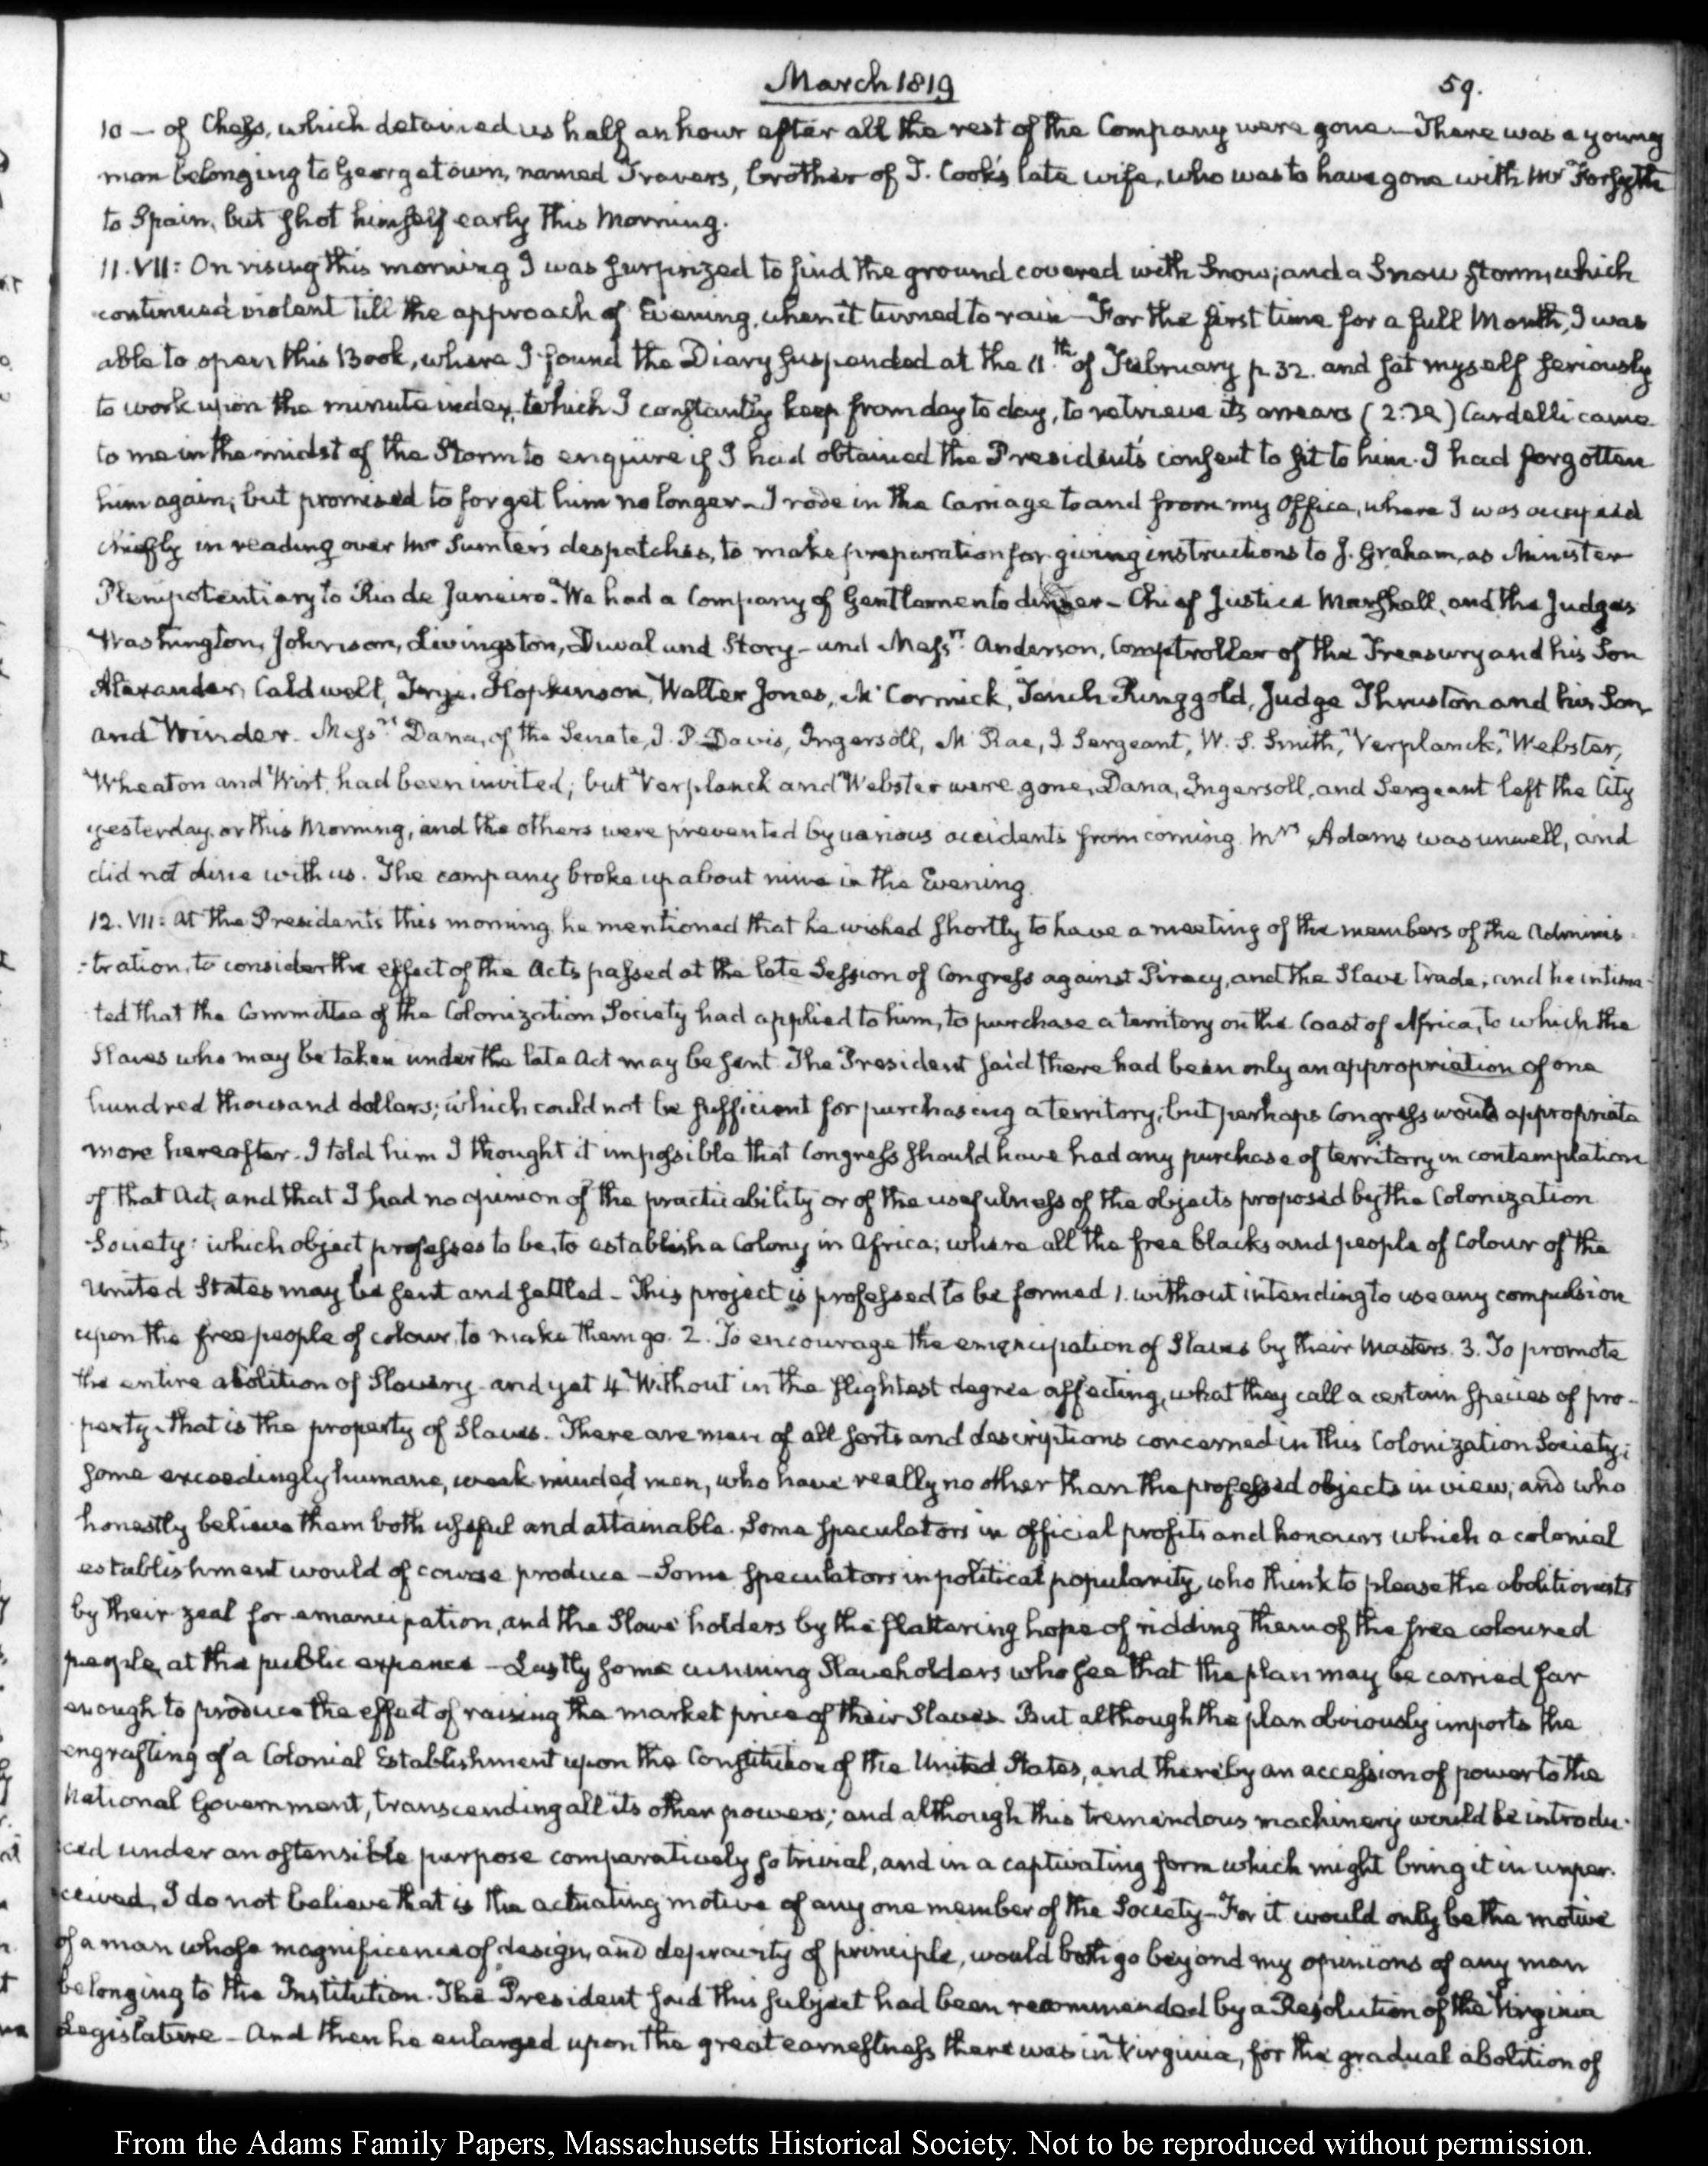 March 1819
59.
10 — of Chess, which detained us half an hour after all the rest of the Company were gone — There was a young
man belonging to Georgetown, named Travers, brother of J. Cook's late wife, who was to have gone with Mr Forsyth
to Spain, but shot himself early this Morning.
11. VII: On rising this morning I was surprized to find the ground covered with Snow; and a Snow storm, which
continued violent till the approach of Evening, when it turned to rain — For the first time for a full Month, I was
able to open this Book, where I found the Diary suspended at the 11th of February p. 32. and sat myself seriously
to work upon the minute index, which I constantly keep from day to day, to retrieve its arrears (2:72) Cardelli came
to me in the midst of the Storm to enquire if I had obtained the President's consent to sit to him. I had forgotten
him again; but promised to forget him no longer — I rode in the Carriage to and from my Office, where I was occupied
chiefly in reading over Mr Sumter's despatches, to make preparation for giving instructions to J. Graham, as Minister
Plenipotentiary to Rio de Janeiro. We had a Company of Gentlemen to dinner — Chief Justice Marshall, and the Judges
Washington, Johnson, Livingston, Duval and Story — and Messrs Anderson, Comptroller of the Treasury and his Son
Alexander, Caldwell, Frye, Hopkinson, Walter Jones, McCormick, Tench Ringgold, Judge Thruston and his Son,
and Winder. Messrs Dana, of the Senate, J. P. Davis, Ingersoll, McRae, J. Sergeant, W. S. Smith, Verplanck, Webster,
Wheaton and Wirt, had been invited; but Verplanck and Webster were gone, Dana, Ingersoll, and Sergeant left the City
yesterday, or this Morning, and the others were prevented by various accidents from coming. Mrs Adams was unwell, and
did not dine with us. The company broke up about nine in the Evening.
12. VII: At the President's this morning, he mentioned that he wished shortly to have a meeting of the members of the Adminis-
-tration, to consider the effect of the Acts passed at the late Session of Congress against Piracy, and the Slave trade; and he intima-
ted that the Committee of the Colonization Society had applied to him, to purchase a territory on the Coast of Africa, to which the
Slaves who may be taken under the late Act may be sent. The President said there had been only an appropriation of one
hundred thousand dollars; which could not be sufficient for purchasing a territory, but perhaps Congress would appropriate
more hereafter. I told him I thought it impossible that Congress should have had any purchase of territory in contemplation
of that Act, and that I had no opinion of the practicability or of the usefulness of the objects proposed by the Colonization
Society: which object professes to be, to establish a Colony in Africa; where all the free blacks and people of Colour of the
United States may be sent and settled — This project is professed to be formed 1. without intending to use any compulsion
upon the free people of colour, to make them go. 2. To encourage the emancipation of Slaves by their Masters. 3. To promote
the entire abolition of Slavery — and yet 4. Without in the slightest degree affecting, what they call a certain species of pro-
perty — that is the property of Slaves. There are men of all sorts and descriptions concerned in this Colonization Society;
some exceedingly humane, weak-minded men, who have really no other than the professed objects in view; and who
honestly believe them both useful and attainable. Some speculators in official profits and honours which a colonial
establishment would of course produce — Some speculators in political popularity, who think to please the abolitionists
by their zeal for emancipation, and the Slave holders by the flattering hope of ridding them of the free coloured
people, at the public expence — Lastly some cunning Slaveholders who see that the plan may be carried far
enough to produce the effect of raising the market price of their Slaves. But although the plan obviously imports the
engrafting of a Colonial Establishment upon the Constitution of the United States, and thereby an accession of power to the
National Government, transcending all its other powers; and although this tremendous machinery would be introdu-
ced under an ostensible purpose comparatively so trivial, and in a captivating form which might bring it in unper-
ceived, I do not believe that is the actuating motive of any one member of the Society — For it would only be the motive
of a man whose magnificence of design, and depravity of principle, would both go beyond my opinions of any man
belonging to the Institution. The President said this subject had been recommended by a Resolution of the Virginia
Legislature — And then he enlarged upon the great earnestness there was in Virginia, for the gradual abolition of
From the Adams Family Papers, Massachusetts Historical Society. Not to be reproduced without permission.